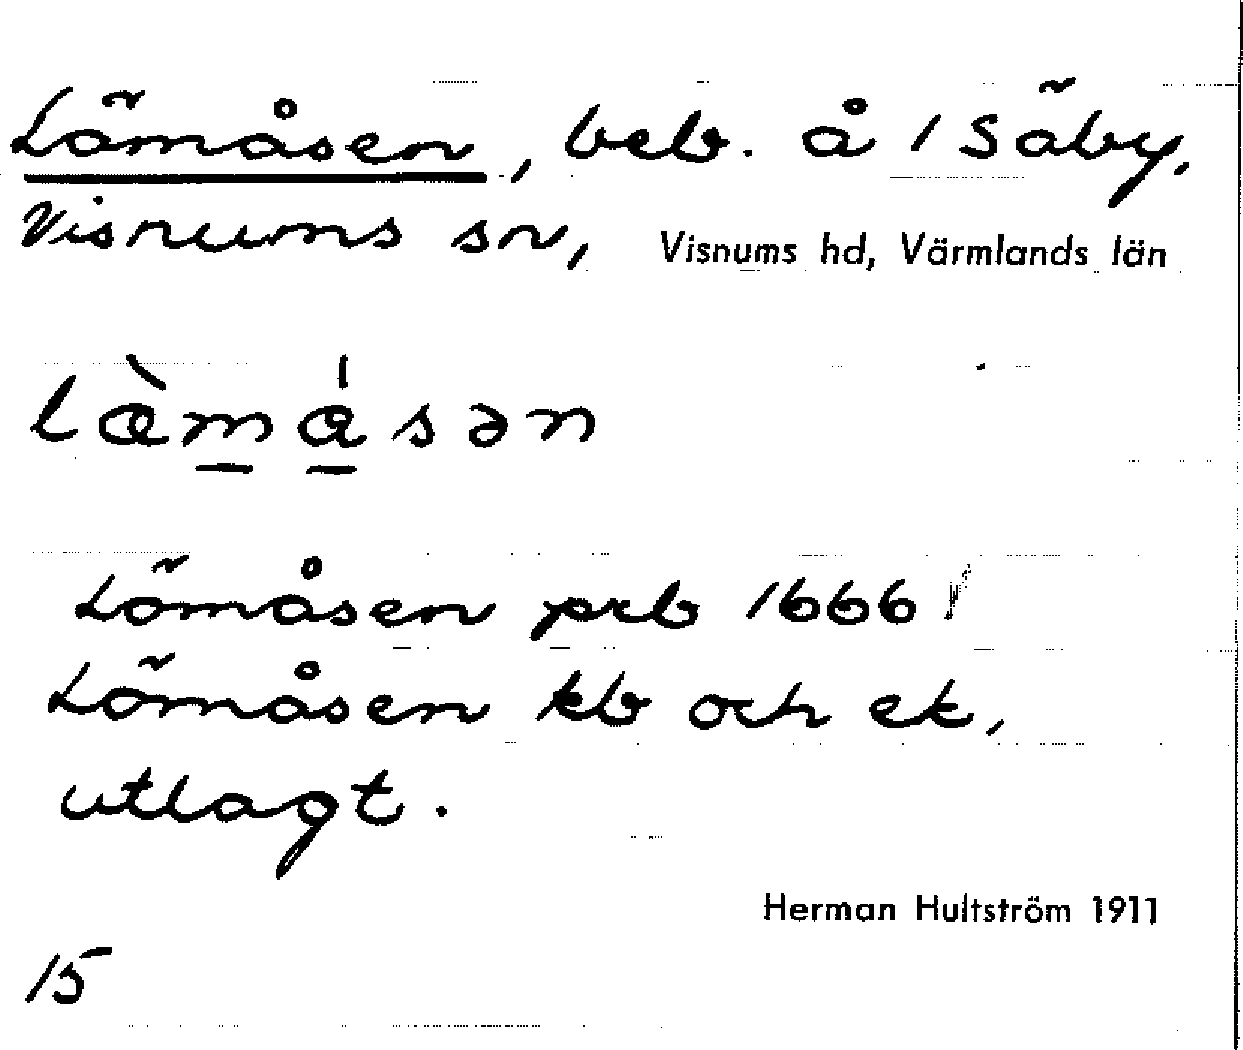 Lömåsen, beb. å 1 Säby,
Visnums sn, Visnums hd, Värmlands län
lœ̀másən
Lömåsen prb 1666
Lömåsen kb och ek,
utlagt.
Herman Hultström 1911
15